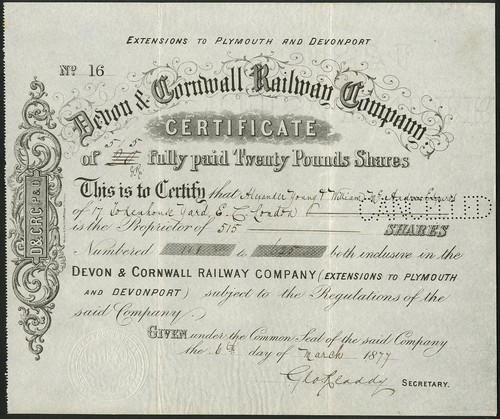 EXTENSIONS TO PLYMOUTH AND DEVONPORT
No 16
Devon & Cornwall Railway Company
CERTIFICATE
of 5 5 fully paid Twenty Pounds Shares
This is to Certify that Alexander Young & William
of 17 Tokenhouse Yard, E.C. London
CANCELLED
is the Proprietor of 515 SHARES
Numbered to both inclusive in the
DEVON & CORNWALL RAILWAY COMPANY (EXTENSIONS TO PLYMOUTH
AND DEVONPORT) subject to the Regulations of the
said Company.
GIVEN under the Common Seal of the said Company
the 6th day of March 1877
SECRETARY.
D & C.R.C. P & D